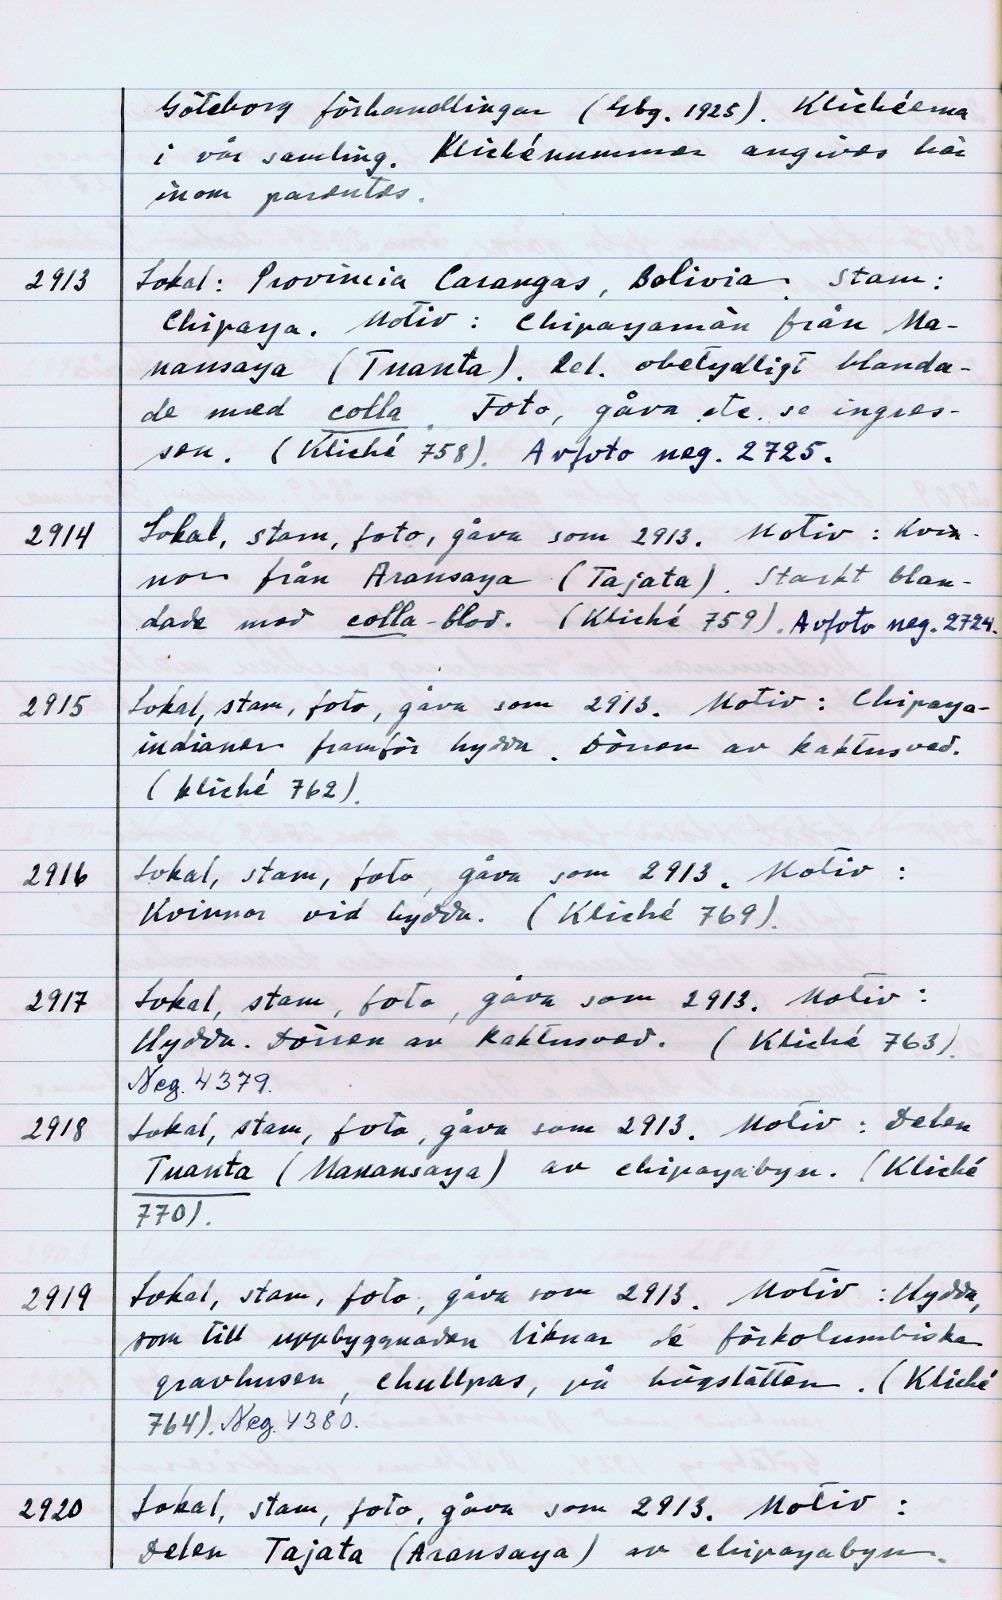 Göteborg förhandlingar (Gbg. 1925). Klichéerna
i vår samling. Klichénummer angives här
inom parentes.
2913 Lokal: Provincia Carangas, Bolivia. Stam:
Chipaya. Motiv: Chipayamän från Ma-
nansaya (Tuanta). Rel. obetydligt blanda-
de med colla. Foto, gåva etc. se ingres-
sen. (Kliché 758). Avfoto neg. 2725.
2914 Lokal, stam, foto, gåva som 2913. Motiv: Kvin-
nor från Aransaya (Tajata). Starkt blan-
dade med colla-blod. (Kliché 759). Avfoto neg. 2724.
2915 Lokal, stam, foto, gåva som 2913. Motiv: Chipaya-
indianer framför hydda. Dörren av kaktusved.
(Kliché 762).
2916 Lokal, stam, foto, gåva som 2913. Motiv:
Kvinnor vid hydda. (Kliché 769).
2917 Lokal, stam, foto, gåva som 2913. Motiv:
Hydda. Dörren av kaktusved. (Kliché 763).
Neg. 4379.
2918 Lokal, stam, foto, gåva som 2913. Motiv: Delen
Tuanta (Manansaya) av chipayabyn. (Kliché
770).
2919 Lokal, stam, foto, gåva som 2913. Motiv: Hydda,
som till uppbyggnaden liknar de förkolumbiska
gravhusen, chullpas, på högslätten. (Kliché
764). Neg. 4380.
2920 Lokal, stam, foto, gåva som 2913. Motiv:
Delen Tajata (Aransaya) av chipayabyn.